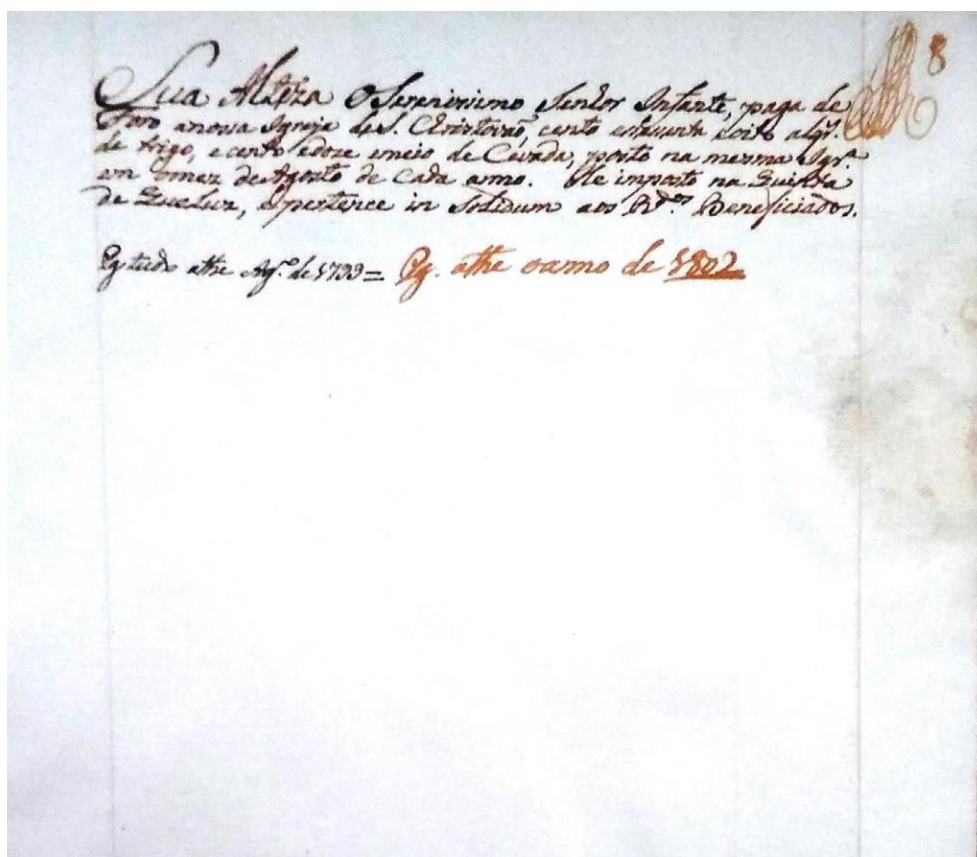 8
Sua Alteza O Serenissimo Senhor Infante, paga de
Foro anossa Igreja de S. Christovaõ, cento eoito alqr.
de trigo, ecento edoze emeio de Cevada, posto na mesma Igrª
em omez de Agosto de cada anno. He imposto na Quinta
de Queluz, epertence in Solidum aos Rdos Beneficiados.
Pg tudo athe Agto de 1799 = Pg. athe oanno de 1802